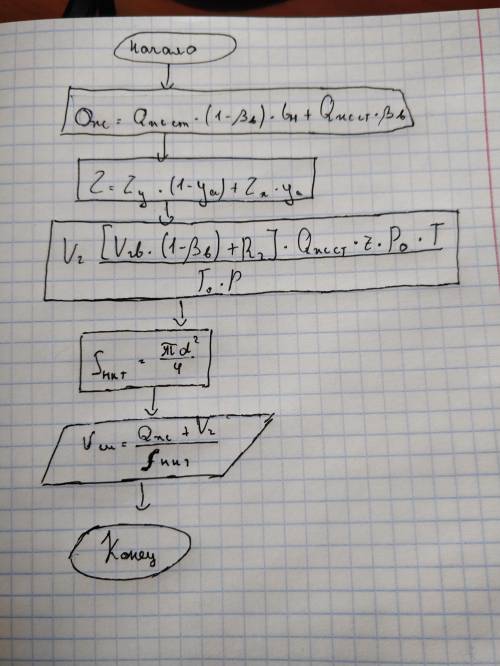 Начало
Qжс = Qжст · (1-βв) · bн + Qжст · βв
Z = Zу · (1-yа) + Zа · yа
Vг [Vгв · (1-βв) + Rг] · Qжст · z · P₀ · T
T₀ · P
fнкт = πd²
4
Vсм = Qжс + Vг
fнкт
Конец